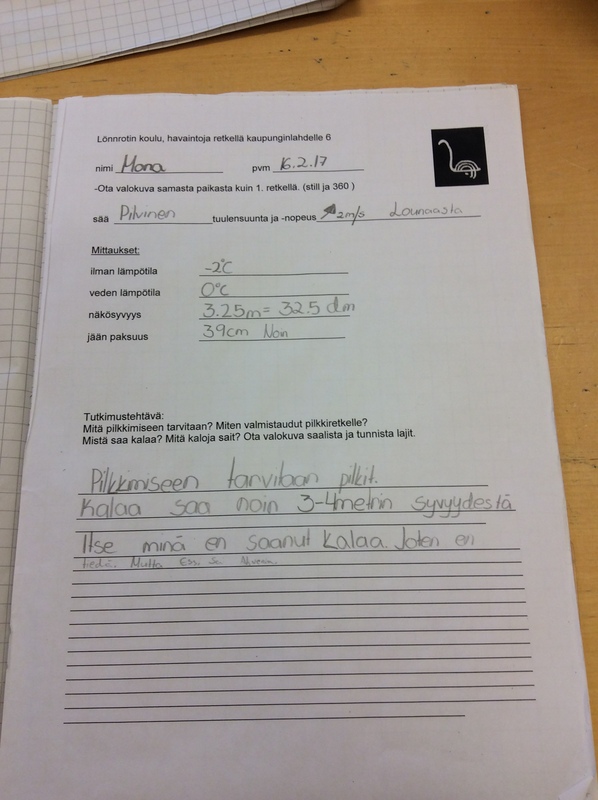 Lönnrotin koulu, havaintoja retkellä kaupunginlahdelle 6
nimi Mona pvm 16.2.17
-Ota valokuva samasta paikasta kuin 1. retkellä. (still ja 360 )
sää Pilvinen tuulensuunta ja -nopeus 2m/s Lounaasta
Mittaukset:
ilman lämpötila -2°C
veden lämpötila 0°C
näkösyvyys 3.25m = 32.5 dm
jään paksuus 39cm Noin
Tutkimustehtävä:
Mitä pilkkimiseen tarvitaan? Miten valmistaudut pilkkiretkelle?
Mistä saa kalaa? Mitä kaloja sait? Ota valokuva saalista ja tunnista lajit.
Pilkkimiseen tarvitaan pilkit.
Kalaa saa noin 3-4metrin syvyydestä
Itse minä en saanut kalaa. Joten en
tiedä. Mutta